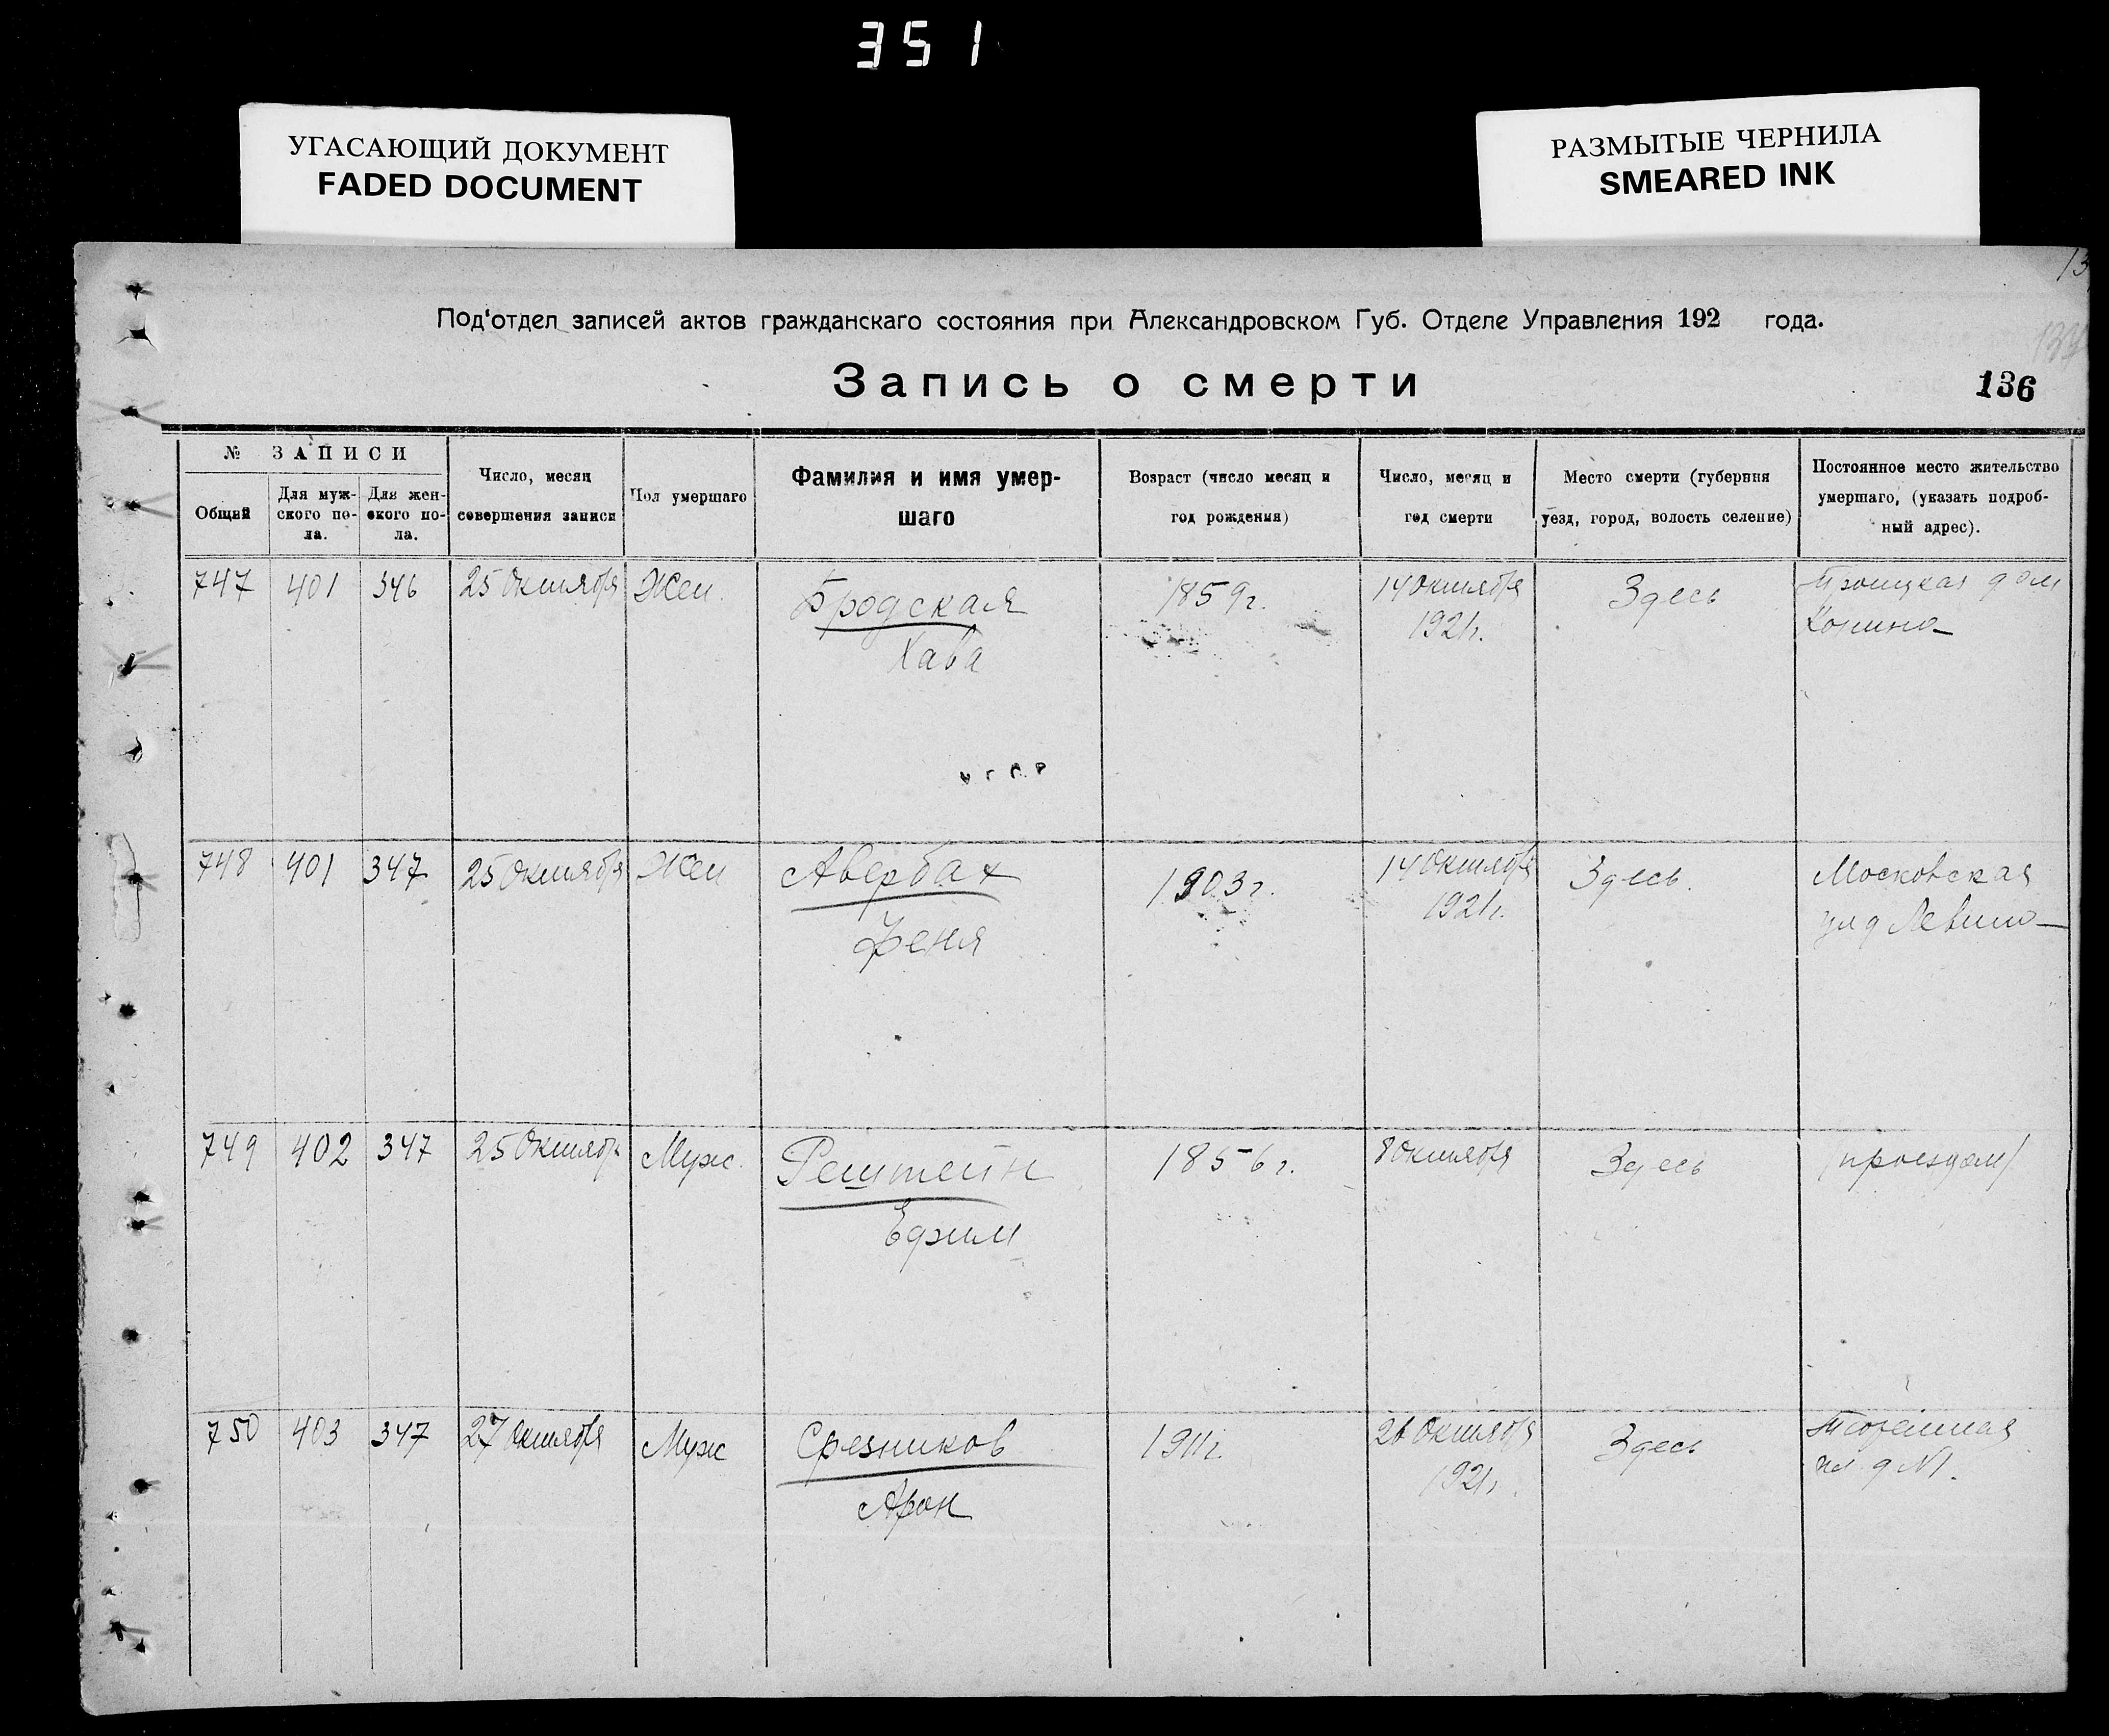 351
УГАСАЮЩИЙ ДОКУМЕНТ
FADED DOCUMENT
РАЗМЫТЫЕ ЧЕРНИЛА
SMEARED INK
Под'отдел записей актов гражданскаго состояния при Александровском Губ. Отделе Управления 192 года.
Запись о смерти
136
№ ЗАПИСИ
Общий
Для муж-
ского по-
ла.
Для жен-
ского по-
ла.
Число, месяц
совершения записи
Пол умершаго
Фамилия и имя умер-
шаго
Возраст (число месяц и
год рождения)
Число, месяц и
год смерти
Место смерти (губерния
уезд, город, волость селение)
Постоянное место жительство
умершаго, (указать подроб-
ный адрес).
747 401 346 25 октября Жен. Бродская 1859г. 14 октября Здесь Троицкая дом
Хава 1921г.
748 401 347 25 октября Жен Авербах 1903г. 14 октября Здесь. Московская
Феня 1921г. ул д Левина
749 402 347 25 октября Муж. Рештейн 1856г. 8 октября Здесь /проездом/
Ефим
750 403 347 27 октября Муж Срезников 1911г. 26 октября Здесь
Арон 1921г. пл д №1.